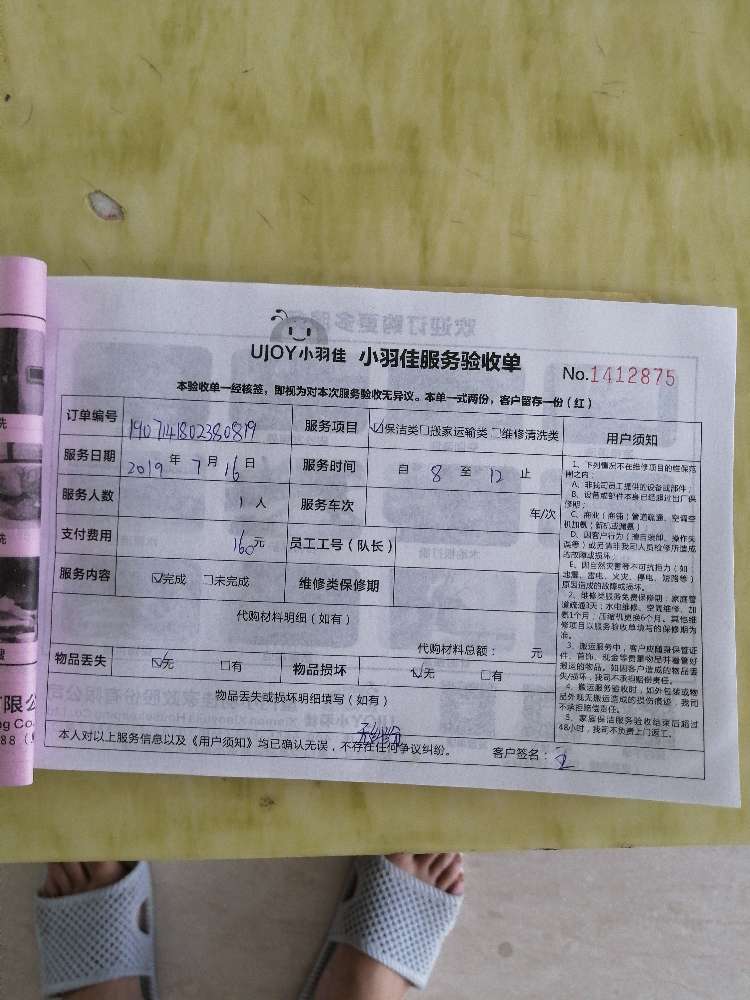 UJOY小羽佳 小羽佳服务验收单
No.1412875
本验收单一经核签，即视为对本次服务验收无异议。本单一式两份，客户留存一份（红）
订单编号 1907141802380819 服务项目 ☑保洁类☐搬家运输类☐维修清洗类 用户须知
服务日期 2019 年 7 月 16 日 服务时间 自 8 至 12 止
服务人数 1 人 服务车次 车/次
支付费用 160元 员工工号（队长）
服务内容 ☑完成 ☐未完成 维修类保修期
代购材料明细（如有）
代购材料总额： 元
物品丢失 ☑无 ☐有 物品损坏 ☑无 ☐有
物品丢失或损坏明细填写（如有）
本人对以上服务信息以及《用户须知》均已确认无误，不存在任何争议纠纷。 客户签名：
1、下列情况不在维修项目的维保范
围之内：
A、非我司员工提供的设备或部件；
B、设备或部件本身已经超过出厂保
修期；
C、商业（商铺）管道疏通、空调空
机加氨（新机或漏氨）
D、因客户行为（擅自装卸、操作失
误等）或另请非我司人员检修所造成
的故障或损坏；
E、因自然灾害等不可抗拒力（如
地震、雷电、火灾、停电、短路等）
原因造成的故障或损坏。
2、维修类服务免费保修期：家庭管
道疏通3天；水电维修、空调维修、加
氨1个月；压缩机更换6个月。其他维
修项目以服务验收单填写的保修期为
准。
3、搬运服务中，客户应随身保管证
件、首饰、现金等贵重物品并看管好
搬运的物品。如因客户造成的物品丢
失/损坏，我司不承担赔偿责任。
4、搬运服务验收时，如外包装或物
品外观无搬运造成的损伤痕迹，我司
不承担赔偿责任。
5、家庭保洁服务验收结束后超过
48小时，我司不负责上门返工。